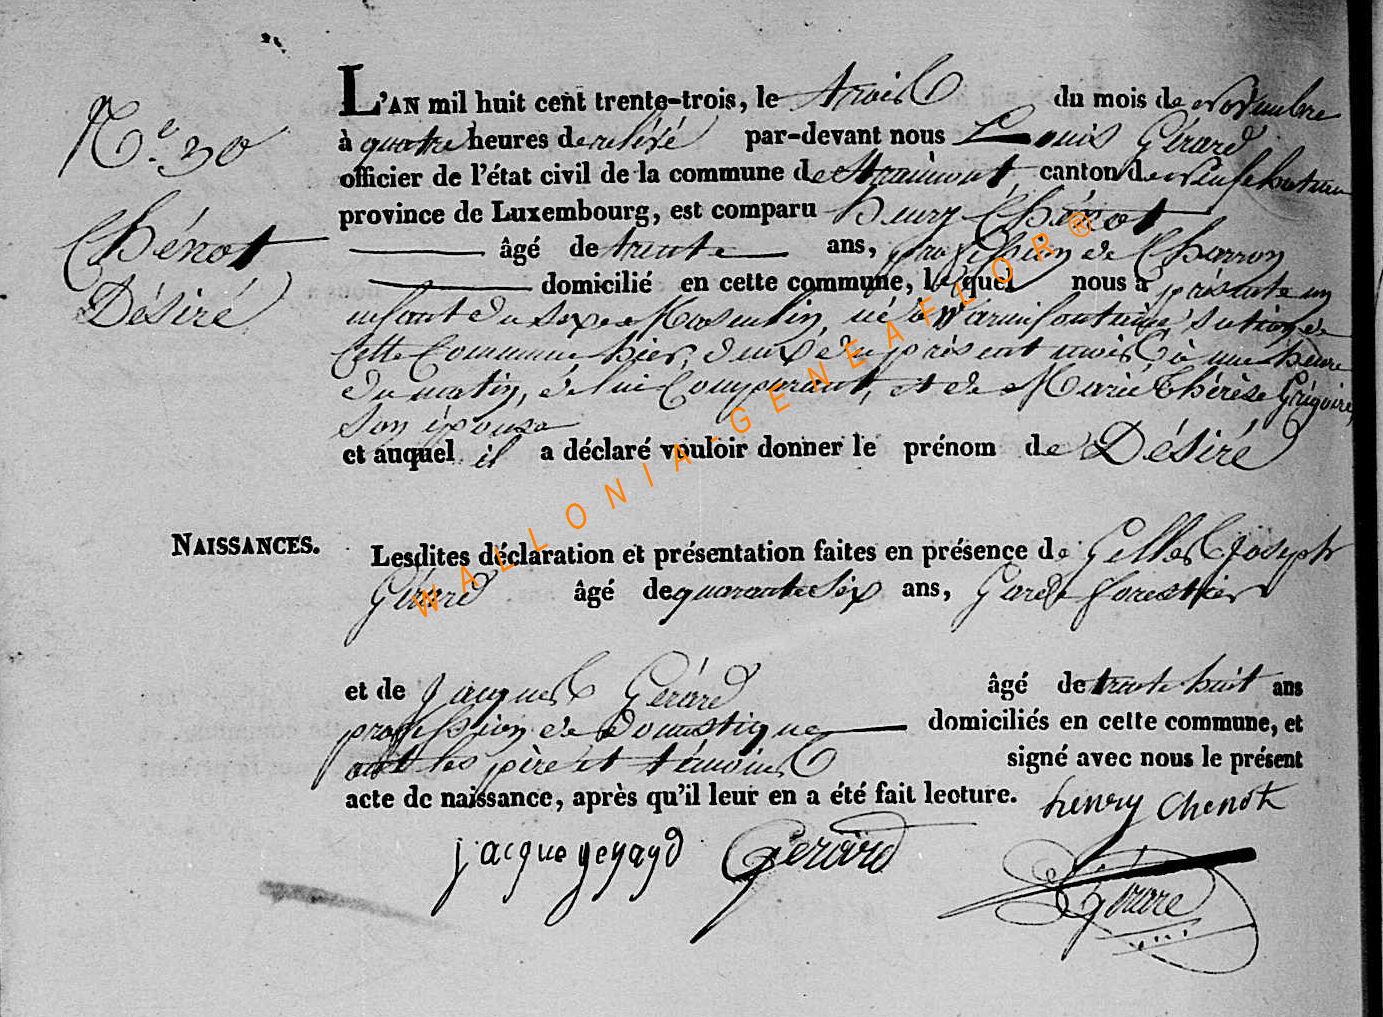 L'AN mil huit cent trente-trois, le trois du mois de novembre
N.° 30
à quatre heures de relevé par-devant nous Louis Gérard
officier de l'état civil de la commune de Straimont canton de Neufchateau
province de Luxembourg, est comparu henry Chénot
Chénot
âgé de trente ans, profession de Charron
domicilié en cette commune, lequel nous a présenté un
Désiré
enfant du sexe Masculin, né à Warmifontaine section de
Cette Commune hier, deux du présent mois à une heure
du matin, de lui Comparant, et de Marie Thérèse Grégoire,
son épouse
et auquel il a déclaré vouloir donner le prénom de Désiré
NAISSANCES.
Lesdites déclaration et présentation faites en présence de Gilles Joseph
Gérard âgé de quarante six ans, Garde forestier
et de Jacques Gérard âgé de trente huit ans
profession de Domestique domiciliés en cette commune, et
ont les père et témoins signé avec nous le présent
acte de naissance, après qu'il leur en a été fait lecture.
henry chenot
jacque gerard Gerard
L Gérard
WALLONIA-GENEAFLOR®